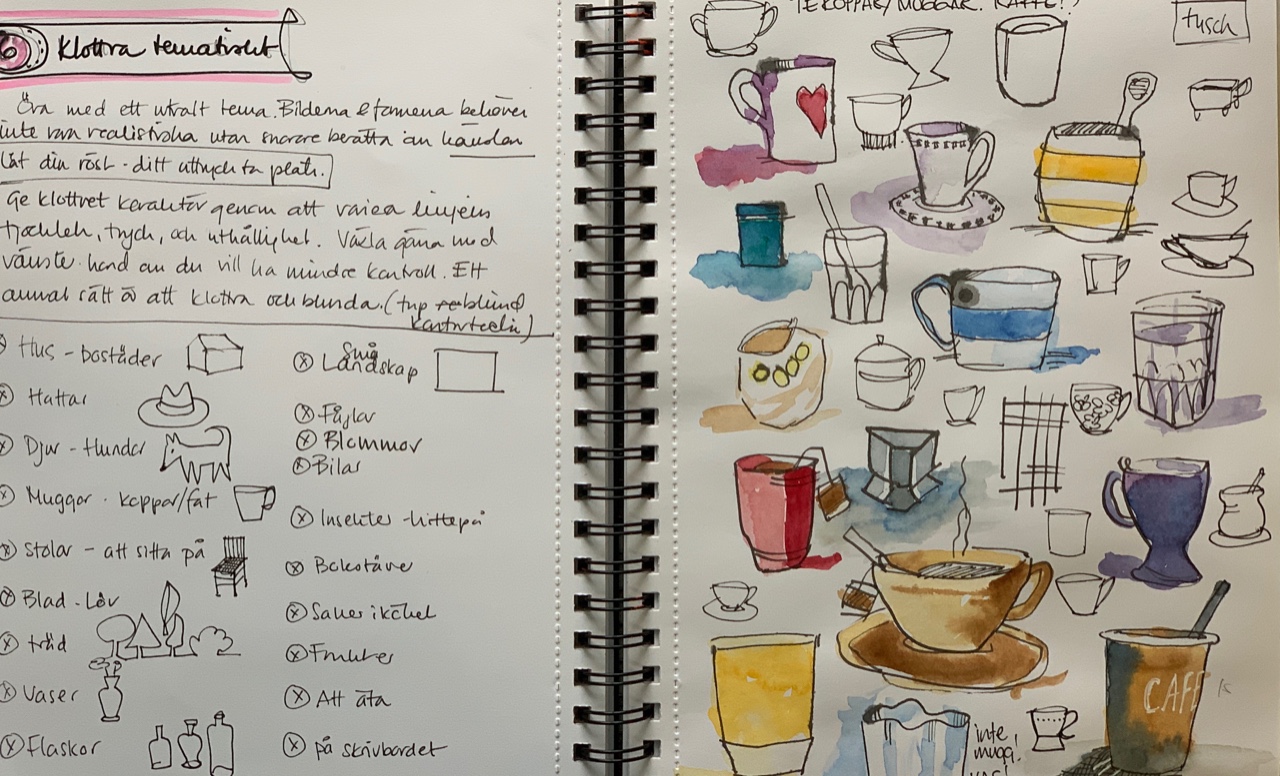 6 Klottra tematiskt
Öva med ett utvalt tema. Bilderna & formerna behöver
inte vara realistiska utan snarare berätta om känslan
låt din röst - ditt uttryck ta plats.
Ge klottret karaktär genom att variera linjens
tjocklek, tryck, och uthållighet. Växla gärna med
vänster hand om du vill ha mindre kontroll. Ett
annat sätt är att klottra och blunda. (typ blind
konturteckn)
Hus - bostäder
Hattar
Djur - Hundar
Muggar - koppar/fat
Stolar - att sitta på
Blad - Löv
träd
Vaser
Flaskor
Små
Landskap
Fåglar
Blommor
Bilar
Insekter - hittepå
Bokstäver
Saker i köket
Frukter
Att äta
på skrivbordet
TEKOPPAR/MUGGAR. KAFFE!
tusch
CAFE
inte
mugg!